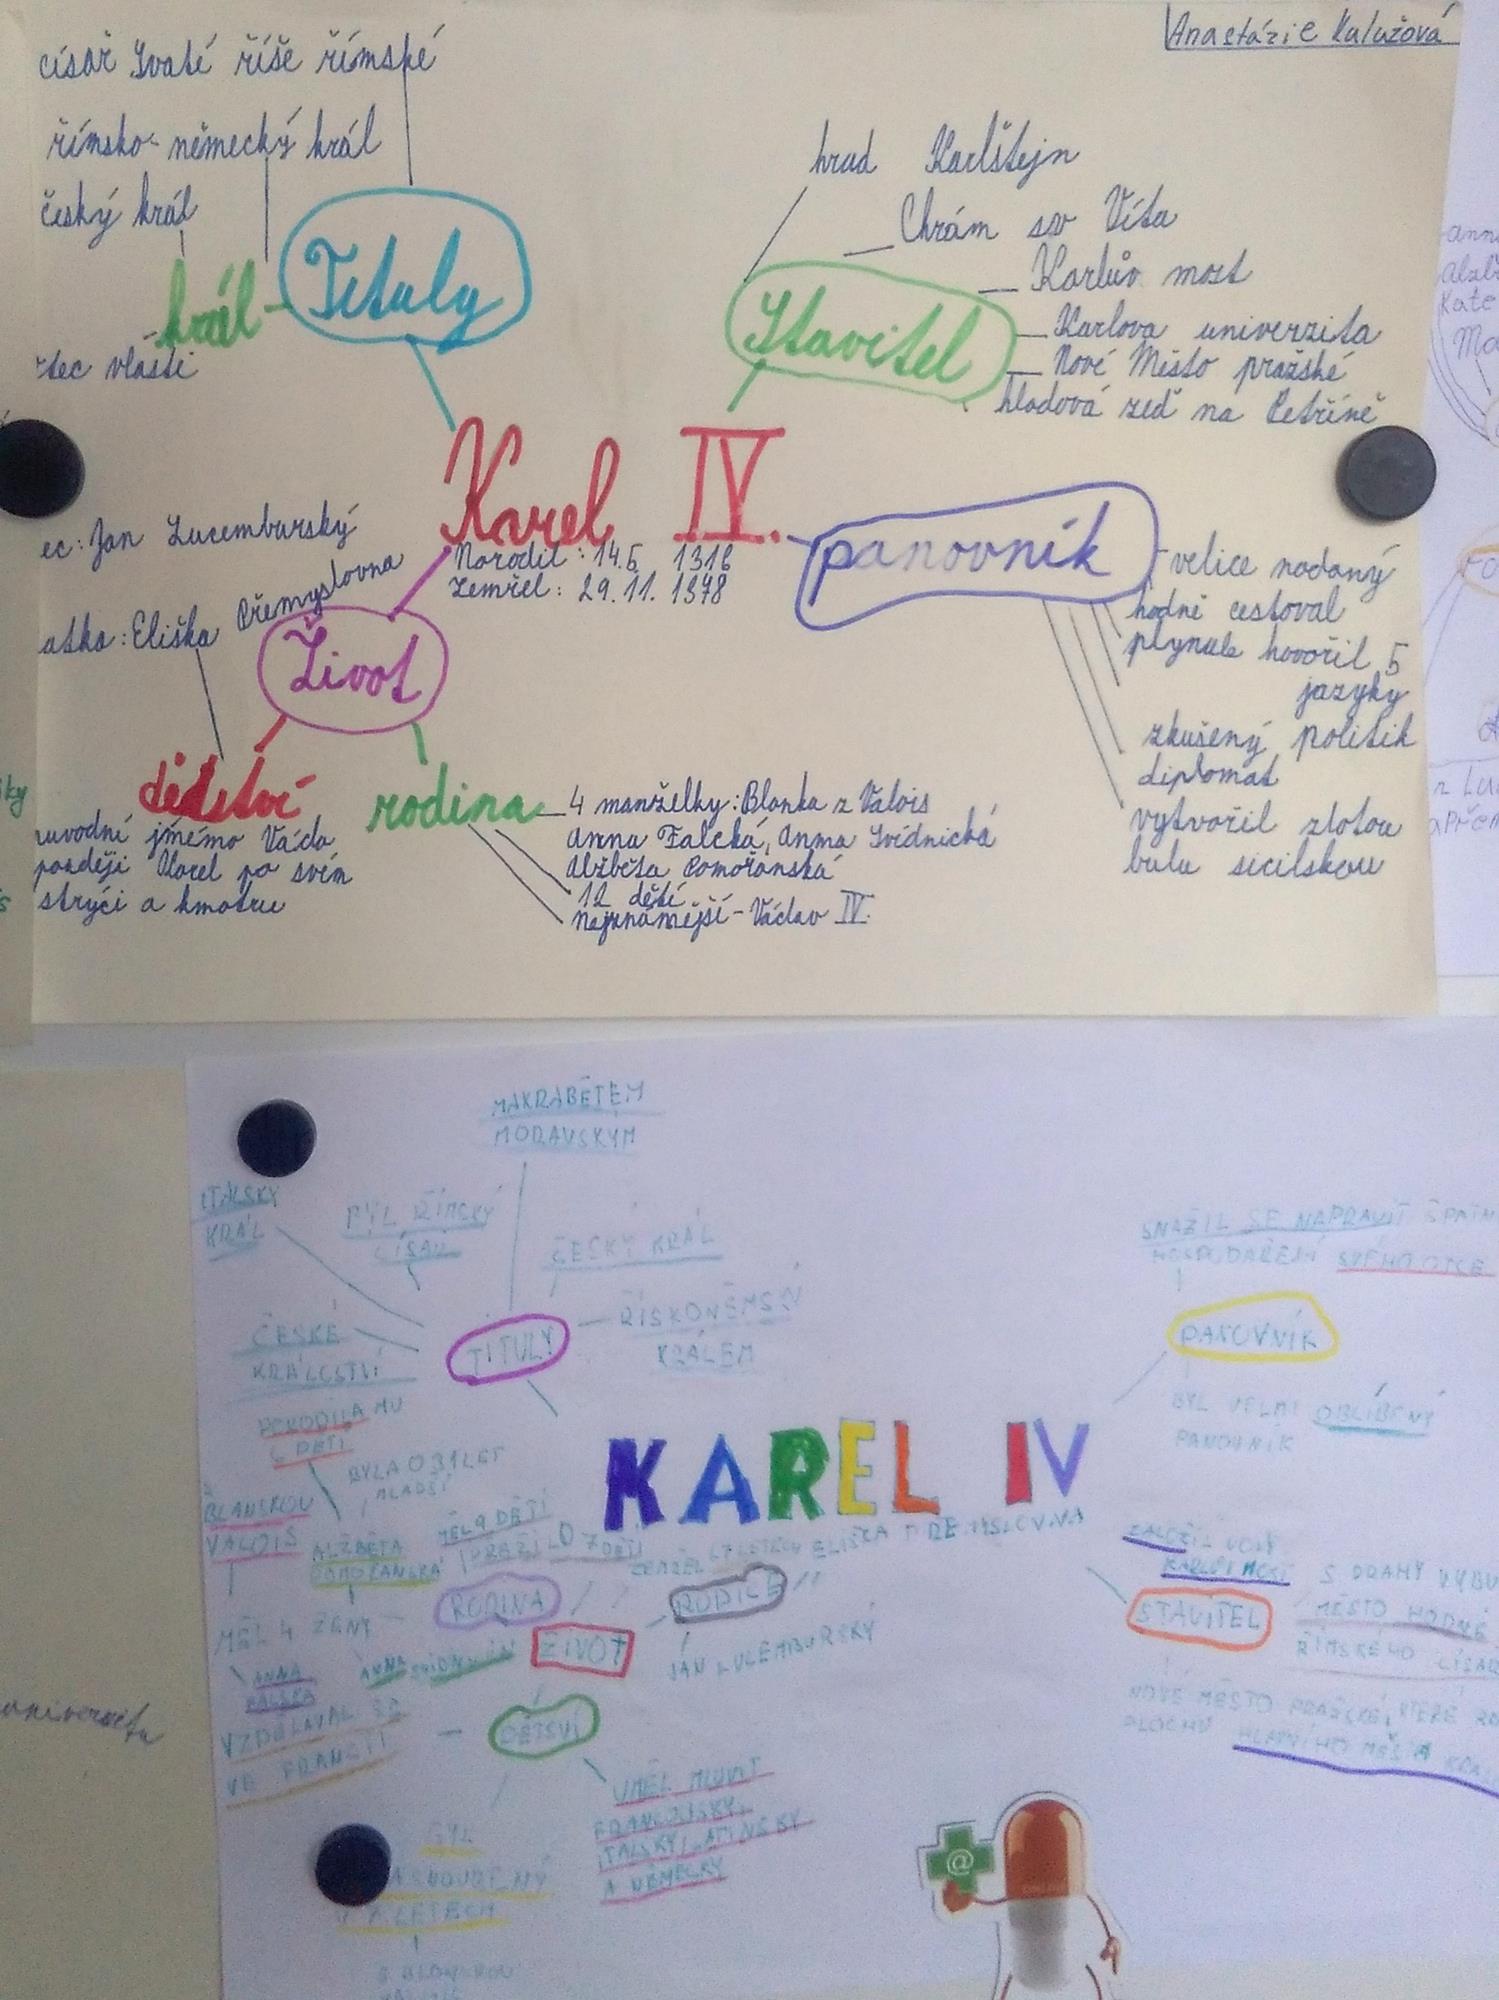 Anastázie Kulužová
císař Svaté říše římské
římsko-německý král
český král
král
Tituly
vlasti
hrad Karlštejn
Chrám sv Víta
Karlův most
Karlova univerzita
Nové Město pražské
hladová zeď na Petříně
Stavitel
Karel IV.
Narodil: 14.5 1316
Zemřel: 29.11. 1378
panovník
velice nadaný
hodně cestoval
plynule hovořil 5
jazyky
zkušený politik
diplomat
vytvořil zlatou
bulu sicilskou
ec: Jan Lucemburský
atka: Eliška Přemyslovna
Život
dětství
jméno Václa
později Karel po svém
strýci a kmotru
rodina
4 manželky: Blanka z Valois
Anna Falcká, Anna Svídnická
Alžběta Pomořanská
12 dětí
nejznámější - Václav IV.
MAKRABĚTEM
MORAVSKÝM
ITALSKÝ
KRÁL
BYL ŘÍMSKÝ
CÍSAŘ
ČESKÝ KRÁL
ŘÍSKONĚMSKÝ
KRÁLEM
TITULY
ČESKÉ
KRÁLOSTVÍ
PORODILA MU
6 DĚTÍ
BYLA O 31 LET
MLADŠÍ
BLANKOU
VALOIS
ALŽBĚTA
POMOŘANSKÁ
MĚL 9 DĚTÍ
PŘEŽILO 7 DĚTÍ
KAREL IV
ELIŠKA PŘEMISLOVNA
RODINA
RODIČE
ŽIVOT
JAN LUCEMBURSKÝ
MĚL 4 ŽENY
ANNA
FALCKÁ
ANNA
VZDĚLÁVAL SE
VE FRANCII
DĚTSVÍ
UMĚL MLUVIT
FRANCOUSKY,
ITALSKY, LATINSKY
A NĚMECKY
BYL
LETECH
S BLANSKOU
SNAŽIL SE NAPRAVIT ŠPATN
HOSPODAŘENÍ SVÉHO OTCE
PANOVNÍK
BYL VELMI OBLÍBENÝ
PANOVNÍK
ZALOŽIL
KARLŮV MOST
STAVITEL
S DRAHY VYBU
MĚSTO HODNÉ
ŘÍMSKÉHO CÍSAŘ
NOVÉ MĚSTO PRAŽSKÉ, KTERÉ
PLOCHU HLAVNÍHO MĚSTA
@